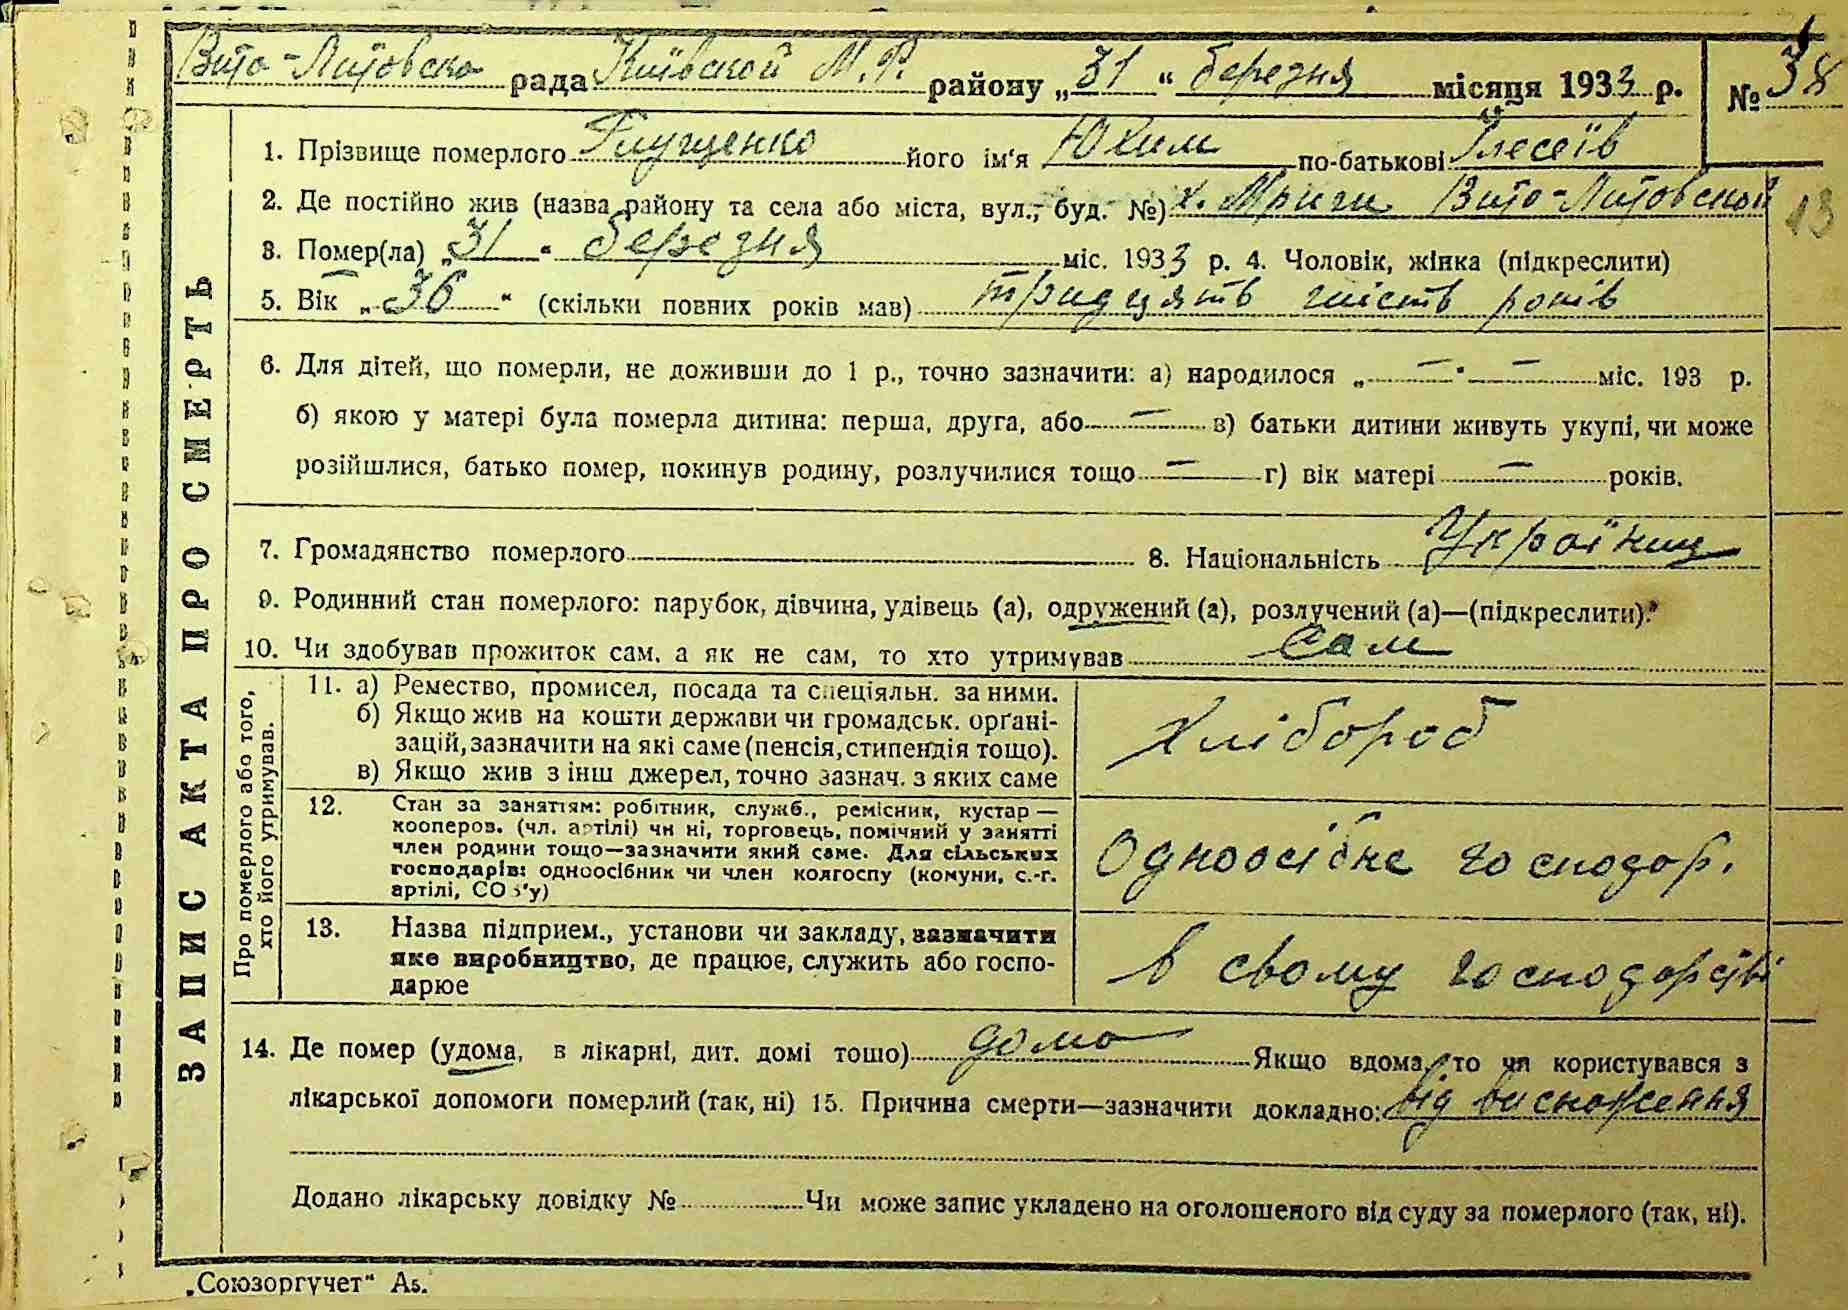 Вито-Литовска рада Київской М.Р. району „31“ березня місяця 1933 р. № 38
1. Прізвище померлого Глущенко його ім'я Юхим по-батькові
2. Де постійно жив (назва району та села або міста, вул., буд. №) х. Мриги Вито-Литовской
13
3. Помер(ла) „31“ березня міс. 1933 р. 4. Чоловік, жінка (підкреслити)
5. Вік „36“ (скільки повних років мав) тридцять шість років
6. Для дітей, що померли, не доживши до 1 р., точно зазначити: а) народилося „—“ — міс. 193 р.
б) якою у матері була померла дитина: перша, друга, або — в) батьки дитини живуть укупі, чи може
розійшлися, батько помер, покинув родину, розлучилися тощо — г) вік матері — років.
7. Громадянство померлого 8. Національність Українец
9. Родинний стан померлого: парубок, дівчина, удівець (а), одружений (а), розлучений (а)—(підкреслити).
10. Чи здобував прожиток сам, а як не сам, то хто утримував сам
ЗАПИС АКТА ПРО СМЕРТЬ
Про померлого або того,
хто його утримував.
11. а) Ремество, промисел, посада та спеціяльн. за ними.
б) Якщо жив на кошти держави чи громадськ. орґані-
зацій, зазначити на які саме (пенсія, стипендія тощо).
в) Якщо жив з інш джерел, точно зазнач. з яких саме
хлібороб
12. Стан за заняттям: робітник, служб., ремісник, кустар —
кооперов. (чл. артілі) чи ні, торговець, помічний у занятті
член родини тощо—зазначити який саме. Для сільських
господарів: одноосібник чи член колгоспу (комуни, с.-г.
артілі, СОЗ'у)
Одноосібне господар.
13. Назва підприєм., установи чи закладу, зазначити
яке виробництво, де працює, служить або госпо-
дарює
в свому господарстві
14. Де помер (удома, в лікарні, дит. домі тошо) дома Якщо вдома, то чи користувався з
лікарської допомоги померлий (так, ні) 15. Причина смерти—зазначити докладно: від виснаження
Додано лікарську довідку № Чи може запис укладено на оголошеного від суду за померлого (так, ні).
„Союзоргучет“ А5.